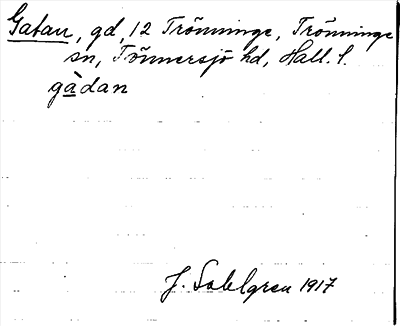 Gatan, gd, 12 Trönninge, Trönninge
sn, Tönnersjö hd, Hall. l.
gàdan
J. Sahlgren 1917